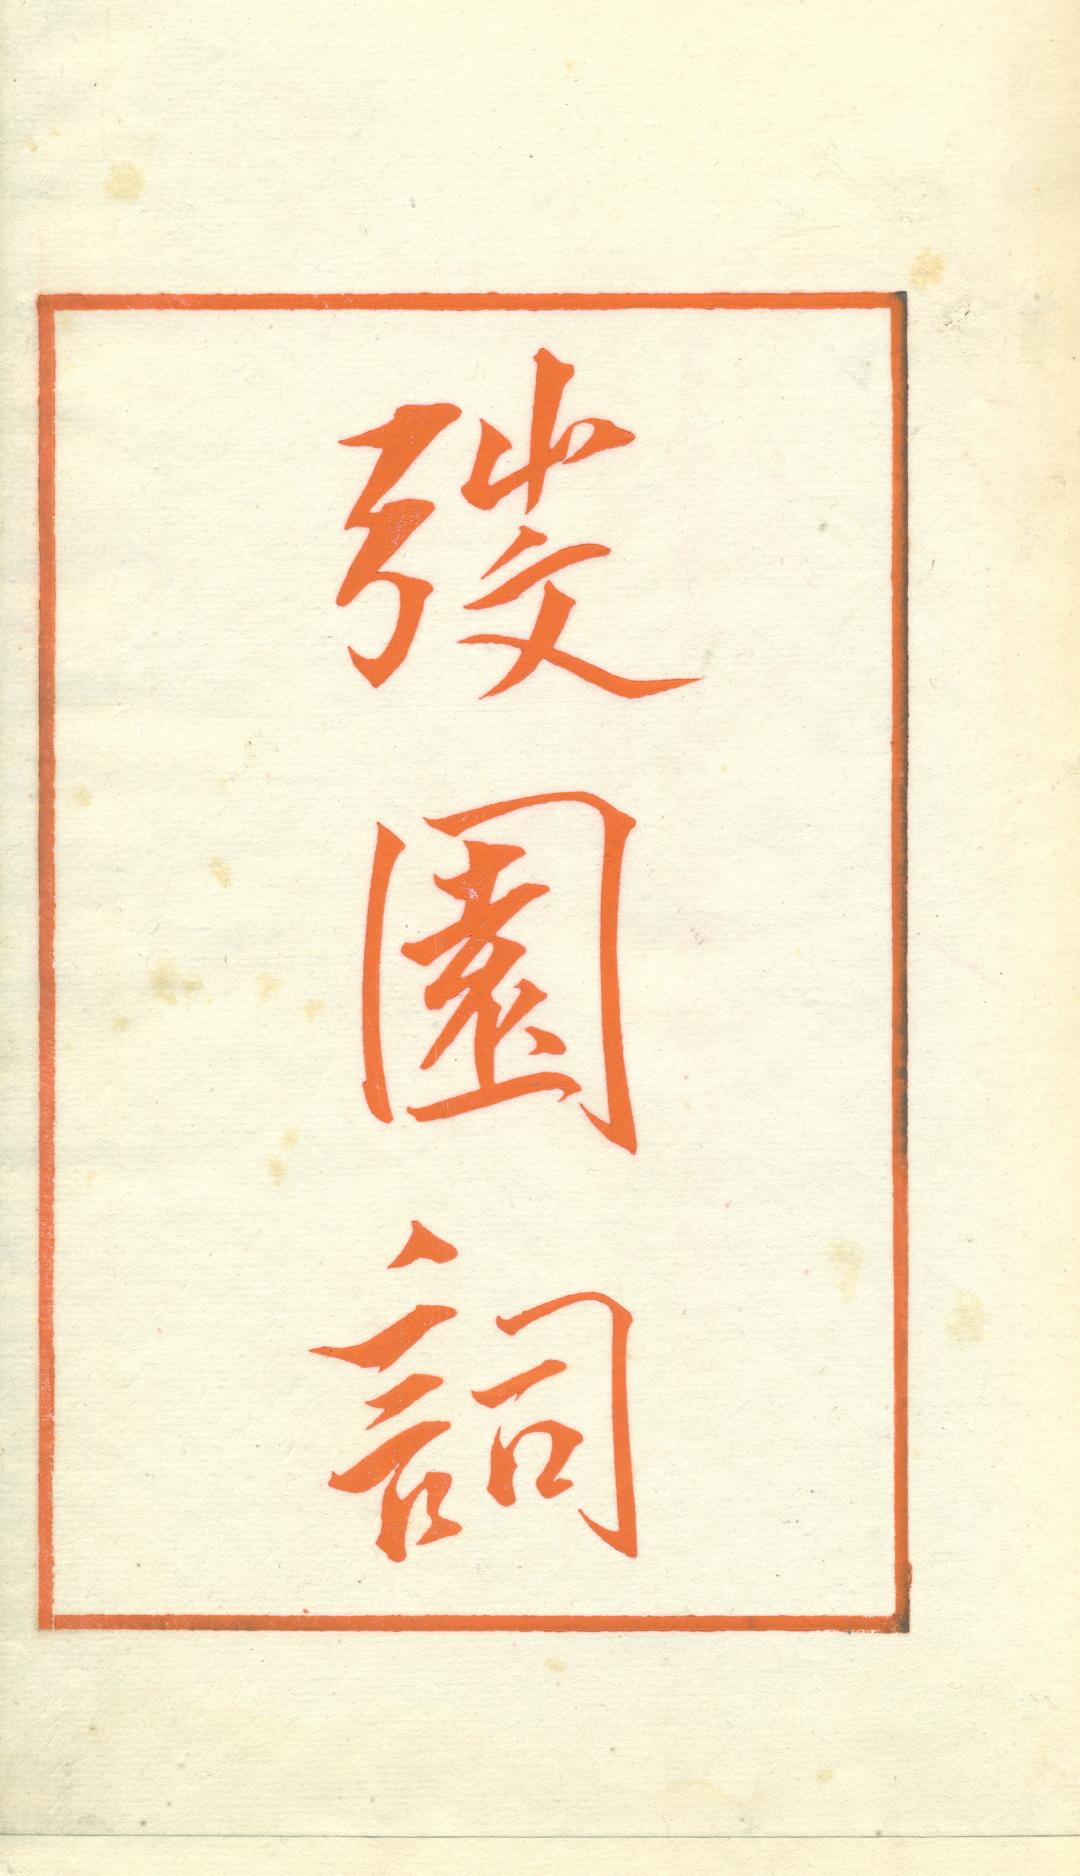 弢園詞